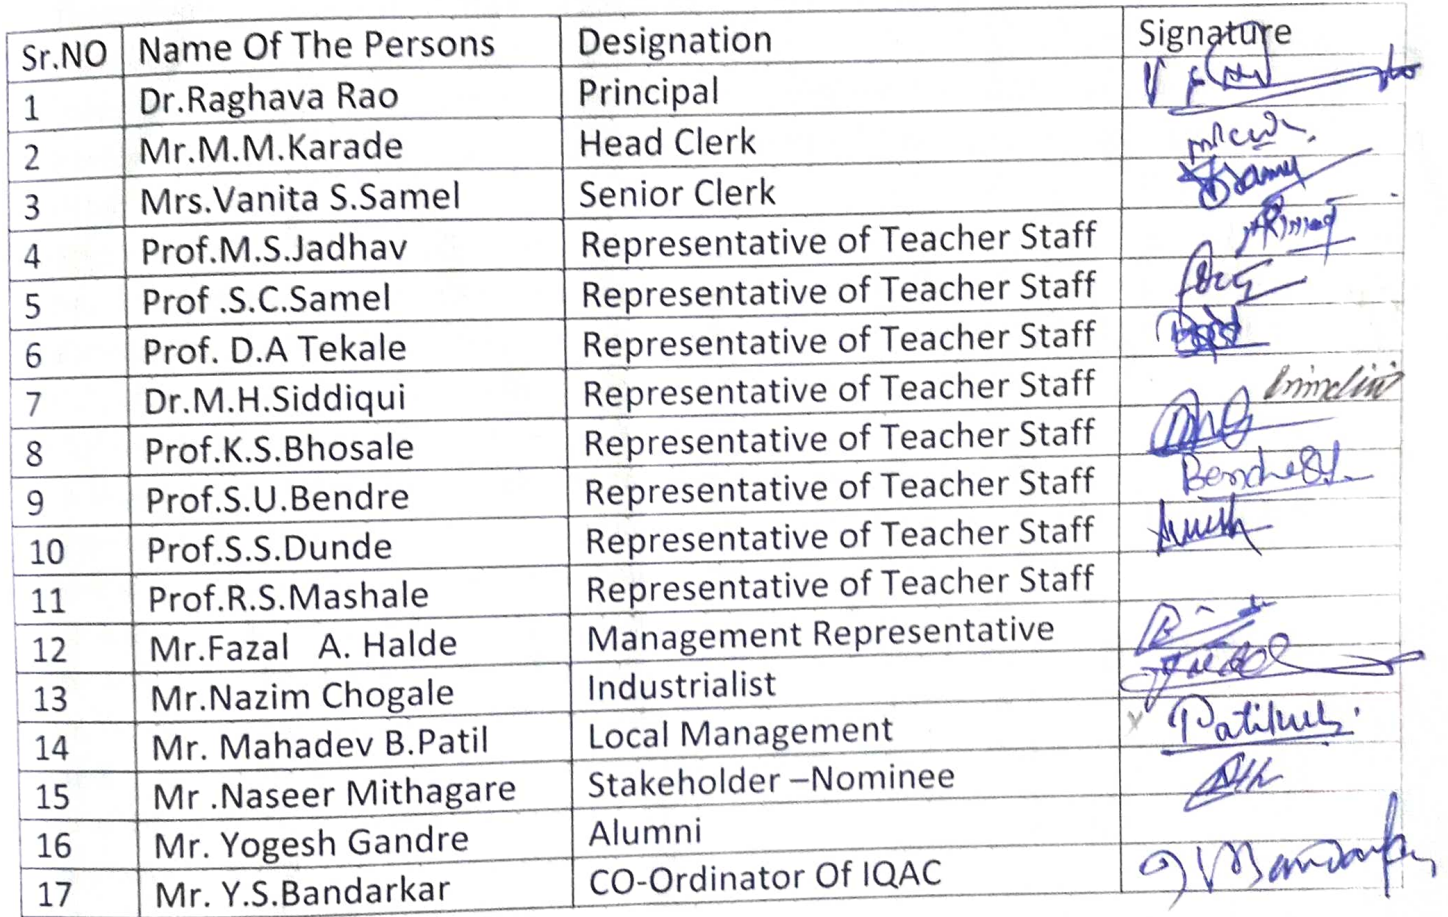 Sr.NO Name Of The Persons Designation Signature
1 Dr.Raghava Rao Principal
2 Mr.M.M.Karade Head Clerk
3 Mrs.Vanita S.Samel Senior Clerk
4 Prof.M.S.Jadhav Representative of Teacher Staff
5 Prof .S.C.Samel Representative of Teacher Staff
6 Prof. D.A Tekale Representative of Teacher Staff
7 Dr.M.H.Siddiqui Representative of Teacher Staff
8 Prof.K.S.Bhosale Representative of Teacher Staff
9 Prof.S.U.Bendre Representative of Teacher Staff
10 Prof.S.S.Dunde Representative of Teacher Staff
11 Prof.R.S.Mashale Representative of Teacher Staff
12 Mr.Fazal A. Halde Management Representative
13 Mr.Nazim Chogale Industrialist
14 Mr. Mahadev B.Patil Local Management
15 Mr .Naseer Mithagare Stakeholder –Nominee
16 Mr. Yogesh Gandre Alumni
17 Mr. Y.S.Bandarkar CO-Ordinator Of IQAC